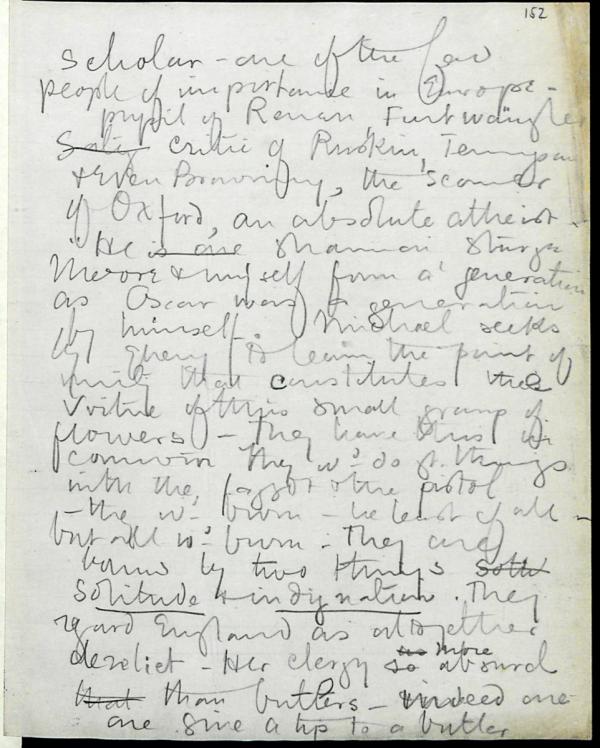 152
scholar – one of the few
people of importance in Europe –
pupil of Renan, Furtwängler
critic of Ruskin, Tennyson
& even Browning, the scorner
of Oxford, an absolute atheist.
"He is one Shannon Sturge
Moore & myself form a generation
as Oscar was a generation
by himself. Michael seeks
to learn the point of
unity that constitutes the
virtue of this small group of
flowers – They have this in
common They wd do gt. things
with the faggot & the pistol
– the wd burn – he least of all –
but all wd burn. They are
bound by two things
solitude & indignation. They
regard England as altogether
derelict – Her clergy more
so absurd
that than butlers – indeed one
one give a tip to a butler